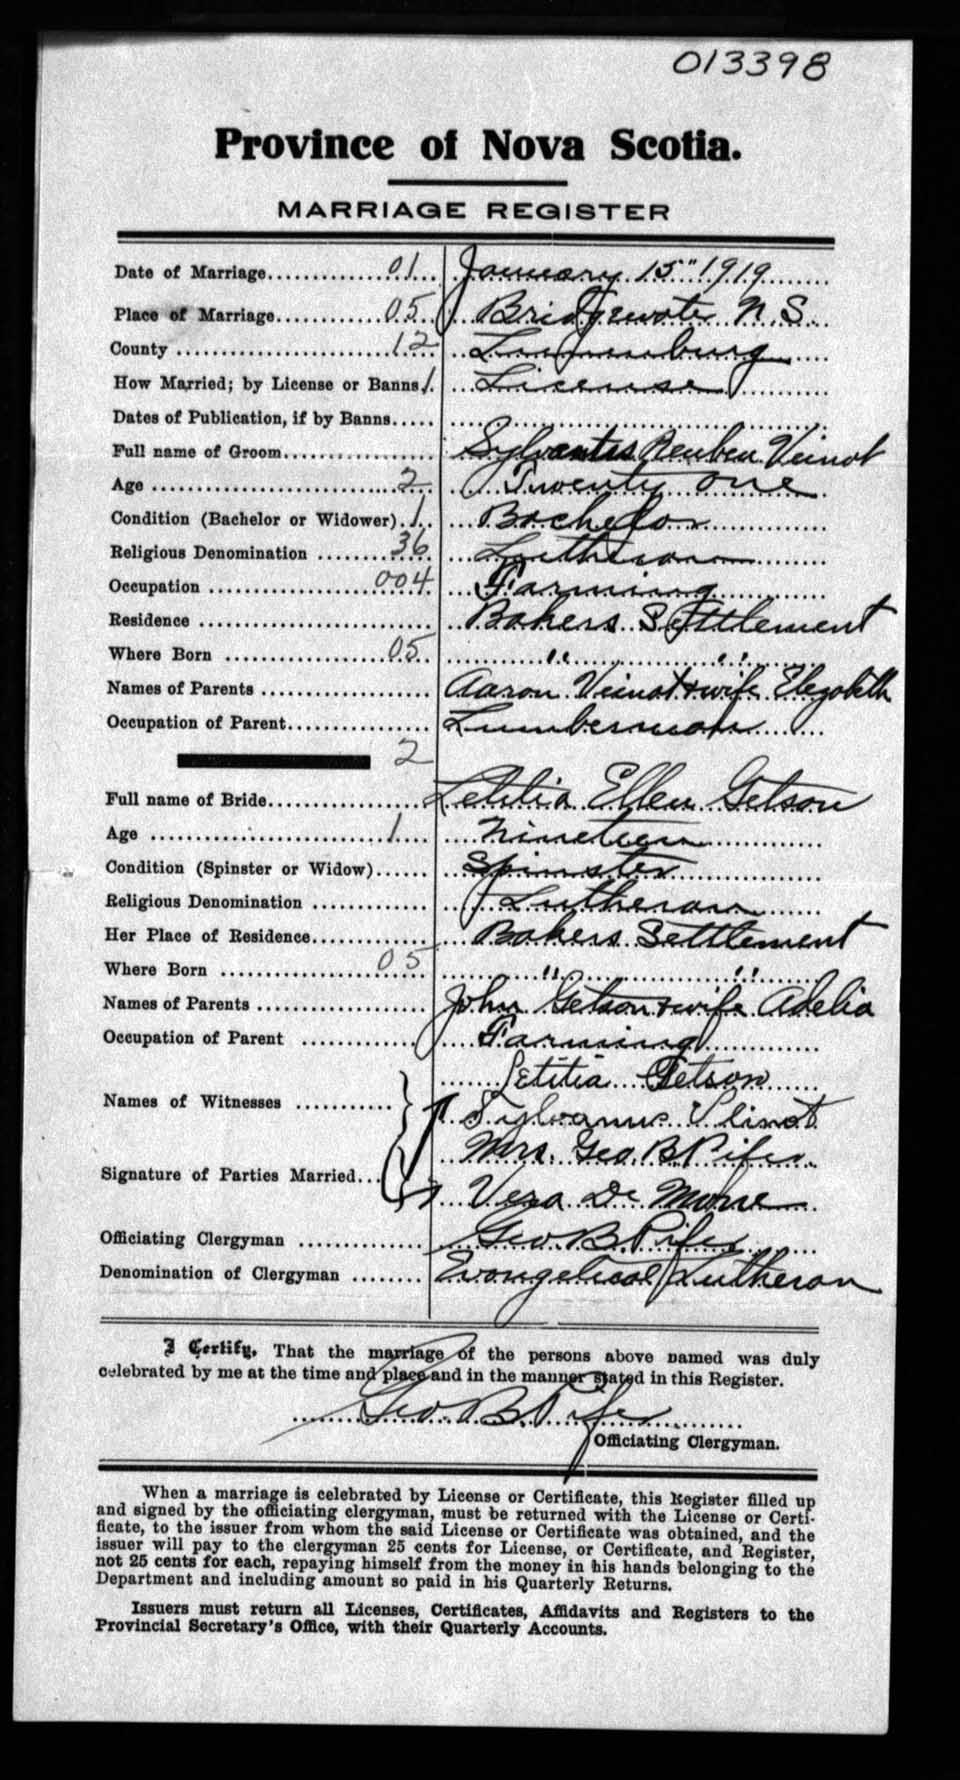 013398
Province of Nova Scotia.
MARRIAGE REGISTER
Date of Marriage 01 January 15" 1919
Place of Marriage 05 Bridgewater N. S.
County 12 Lunenburg
How Married; by License or Banns 1 License
Dates of Publication, if by Banns
Full name of Groom Reuben Veinot
Age 2 Twenty one
Condition (Bachelor or Widower) 1 Bachelor
Religious Denomination 36 Lutheran
Occupation 004 Farming
Residence Bakers Settlement
Where Born 05 " "
Names of Parents Aaron Veinot & wife Elezabeth
Occupation of Parent Lumberman
2
Full name of Bride Letitia Ellen Getson
Age 1 Nineteen
Condition (Spinster or Widow) Spinster
Religious Denomination Lutheran
Her Place of Residence Bakers Settlement
Where Born 05 " "
Names of Parents John Getson & wife Adelia
Occupation of Parent Farming
Letitia Getson
Names of Witnesses Sylvanus Veinot
Mrs. Geo B Pifer
Signature of Parties Married Vera De Mone
Officiating Clergyman Geo B. Pifer
Denomination of Clergyman Evangelical Lutheran
I Certify, That the marriage of the persons above named was duly
celebrated by me at the time and place and in the manner stated in this Register.
Geo B. Pifer
Officiating Clergyman.
When a marriage is celebrated by License or Certificate, this Register filled up
and signed by the officiating clergyman, must be returned with the License or Certi-
ficate, to the issuer from whom the said License or Certificate was obtained, and the
issuer will pay to the clergyman 25 cents for License, or Certificate, and Register,
not 25 cents for each, repaying himself from the money in his hands belonging to the
Department and including amount so paid in his Quarterly Returns.
Issuers must return all Licenses, Certificates, Affidavits and Registers to the
Provincial Secretary's Office, with their Quarterly Accounts.